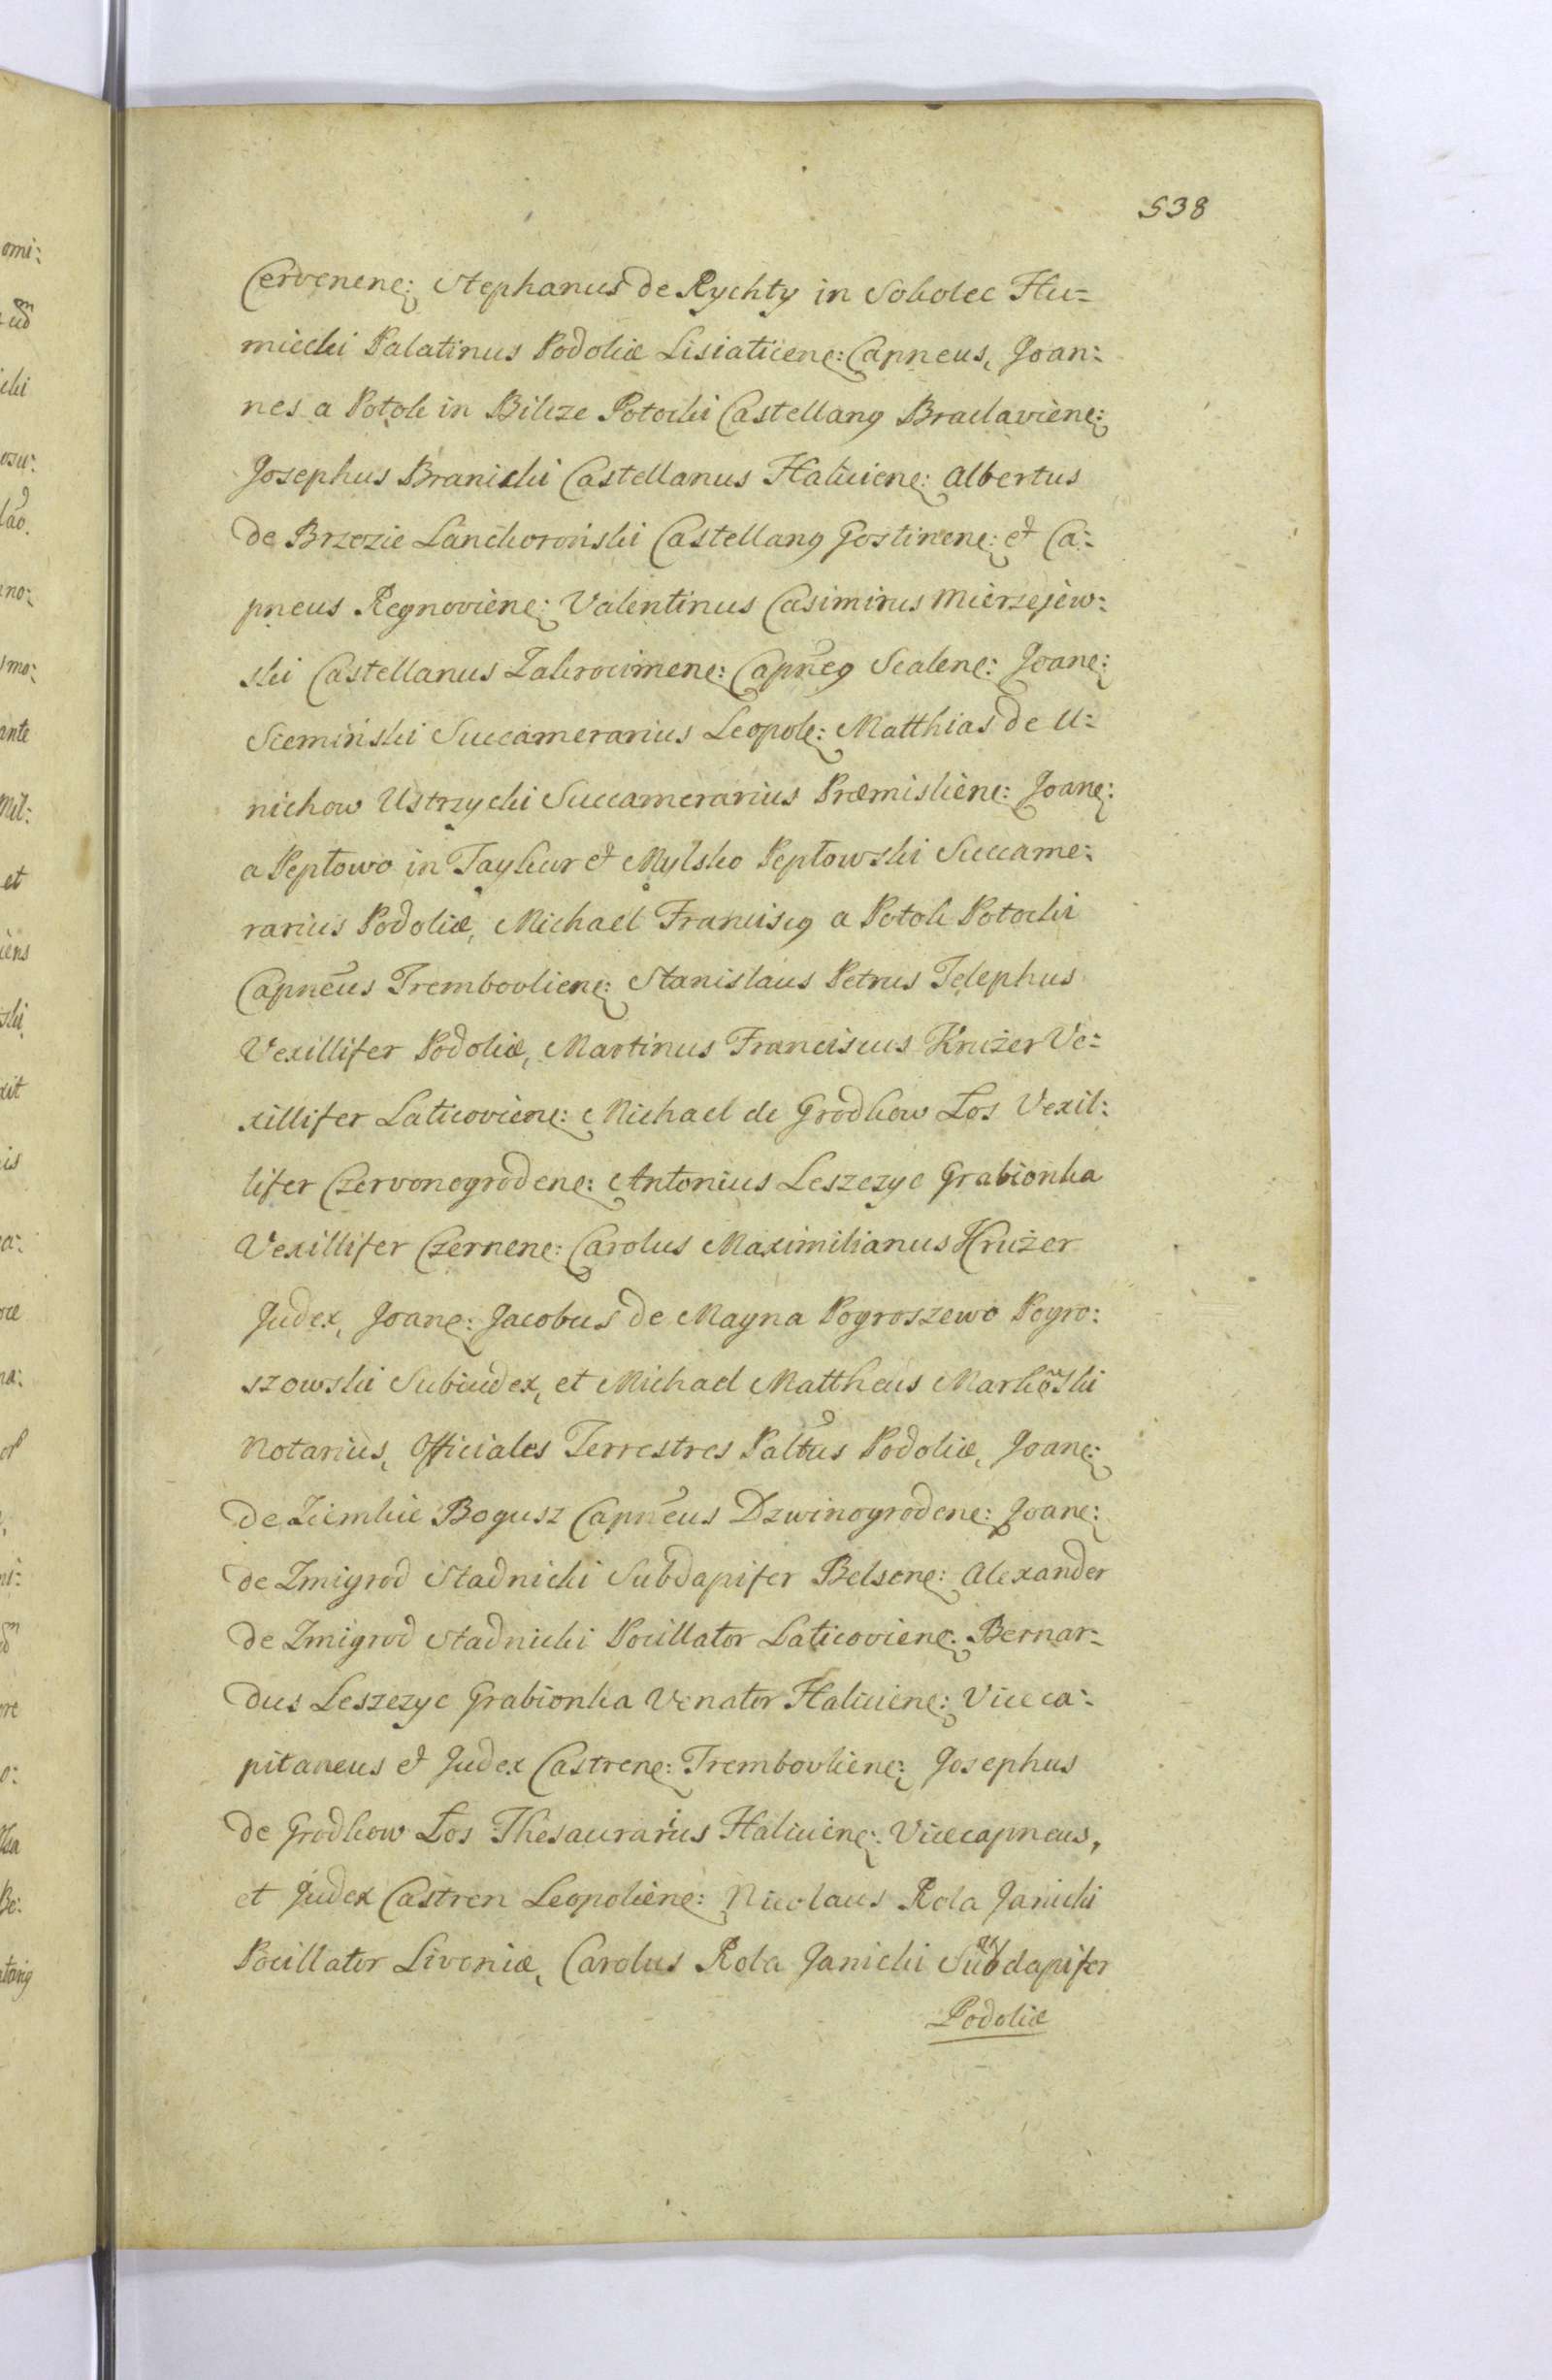 538
Cervenen: Stephanus de Rychty in Sokolec Hu=
miecki Palatinus Podoliæ Lisiaticen: Capneus, Joan:
nes a Potok in Bilcze Potocki Castellang Braclavien:
Josephus Branicki Castellanus Halicien: Albertus
de Brzezie Lanckoroński Castellang Gostinen: et Ca:
pneus Regnovien: Valentinus Casimirus Mierzejew:
ski Castellanus Zakrocimen: Capneg Scalen: Joan:
Siemiński Succamerarius Leopol: Matthias de U:
nichow Ustrzycki Succamerarius Præmislien: Joan:
a Pepłowo in Taykur et Mylsko Pepłowski Succame:
rarius Podoliæ, Michael Franciscg a Potok Potocki
Capneus Trembovlien: Stanislaus Petrus Telephus
Vexillifer Podoliæ, Martinus Franciscus Krużer Ve:
xillifer Laticovien: Michael de Grodkow Łos Vexil:
lifer Czervonogroden: Antonius Leszczyc Grabionka
Vexillifer Czernen: Carolus Maximilianus Krużer
Judex, Joan: Jacobus de Magna Pogroszewo Pogro:
szowski Subiudex, et Michael Mattheus Markowski
Notarius, Officiales Terrestres Paltus Podoliæ, Joan:
de Ziemlic Bogusz Capneus Dzwinogroden: Joan:
de Zmigrod Stadnicki Subdapifer Belsen: Alexander
de Zmigrod Stadnicki Pocillator Laticovien: Bernar:
dus Leszczyc Grabionka Venator Halicien: Viceca:
pitaneus et Judex Castren: Trembovlien: Josephus
de Grodkow Łos Thesaurarius Halicien: Vicecapneus,
et Judex Castren Leopolien: Nicolaus Rola Janicki
Pocillator Livoniæ, Carolus Rola Janicki Subdapifer
Podoliæ